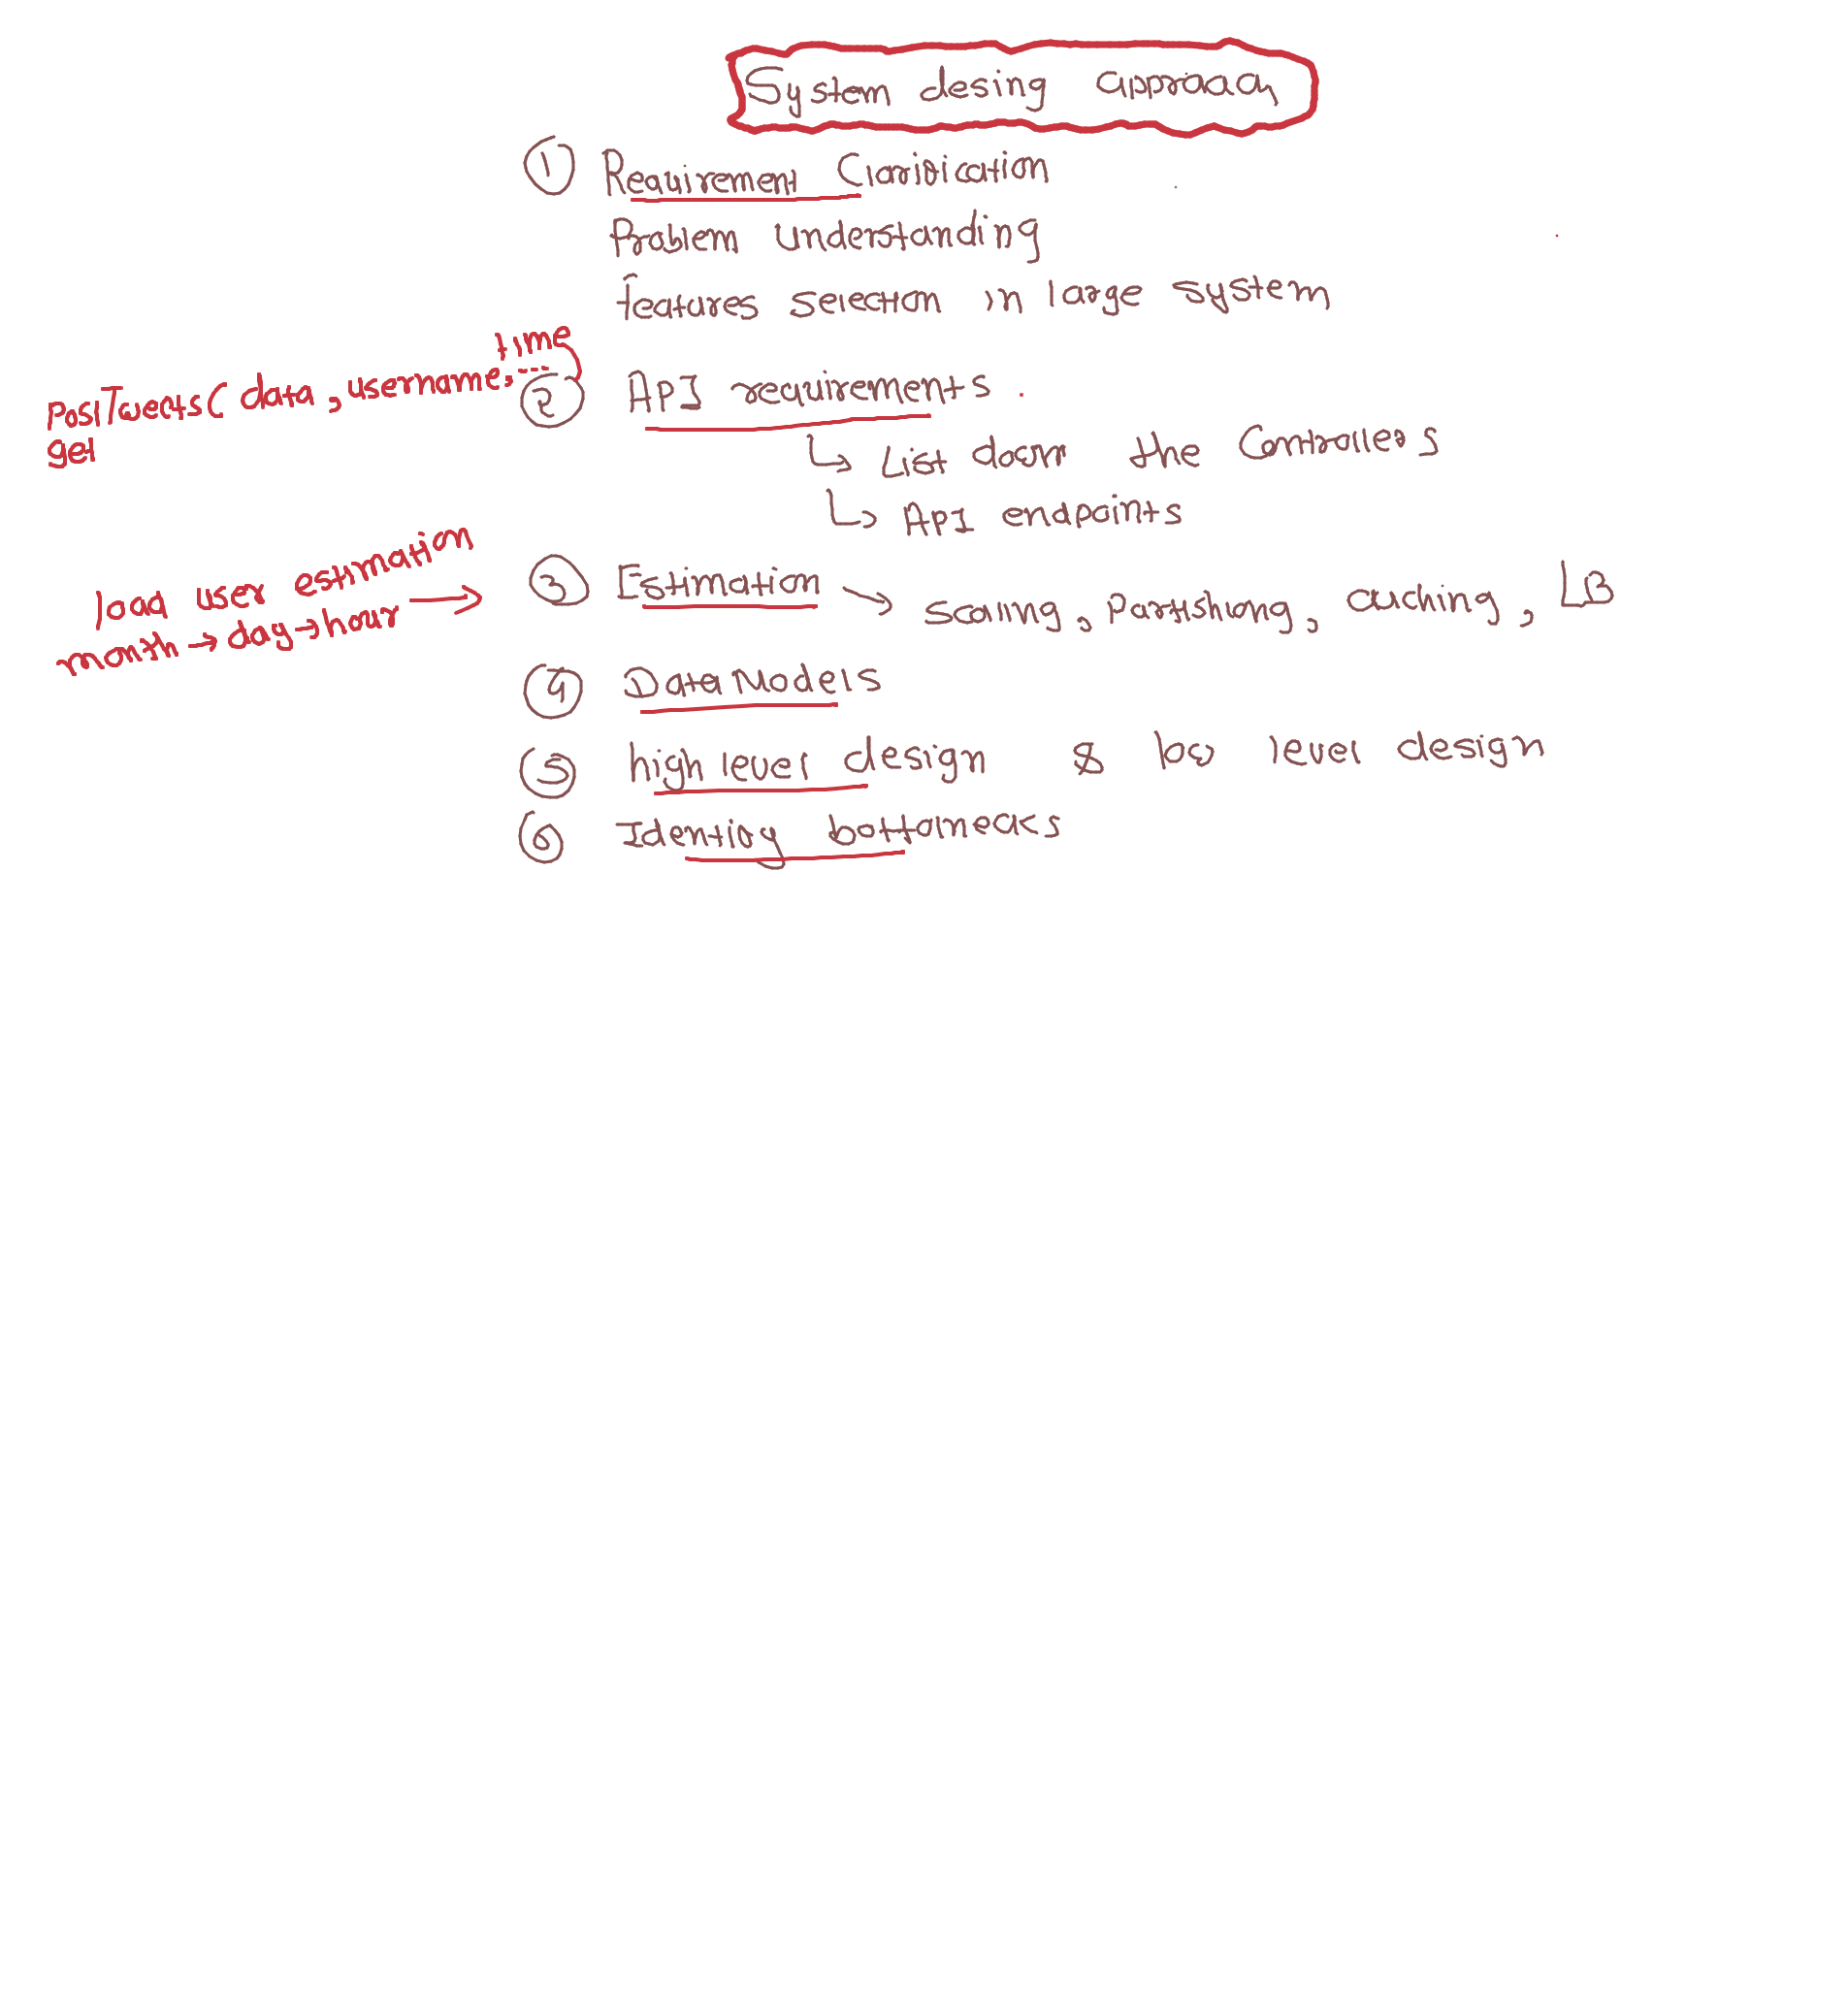 System desing approach
① Requirement Clarification
Problem understanding
features selection in large system
time
PostTweets( data, username, ...
② API requirements.
get
↳ List down the Controllers
↳ API endpoints
load user estimation
month → day → hour →
③ Estimation → Scaling, Partishiong, caching, LB
④ Data Models
⑤ high level design & low level design
⑥ Identify bottlenecks